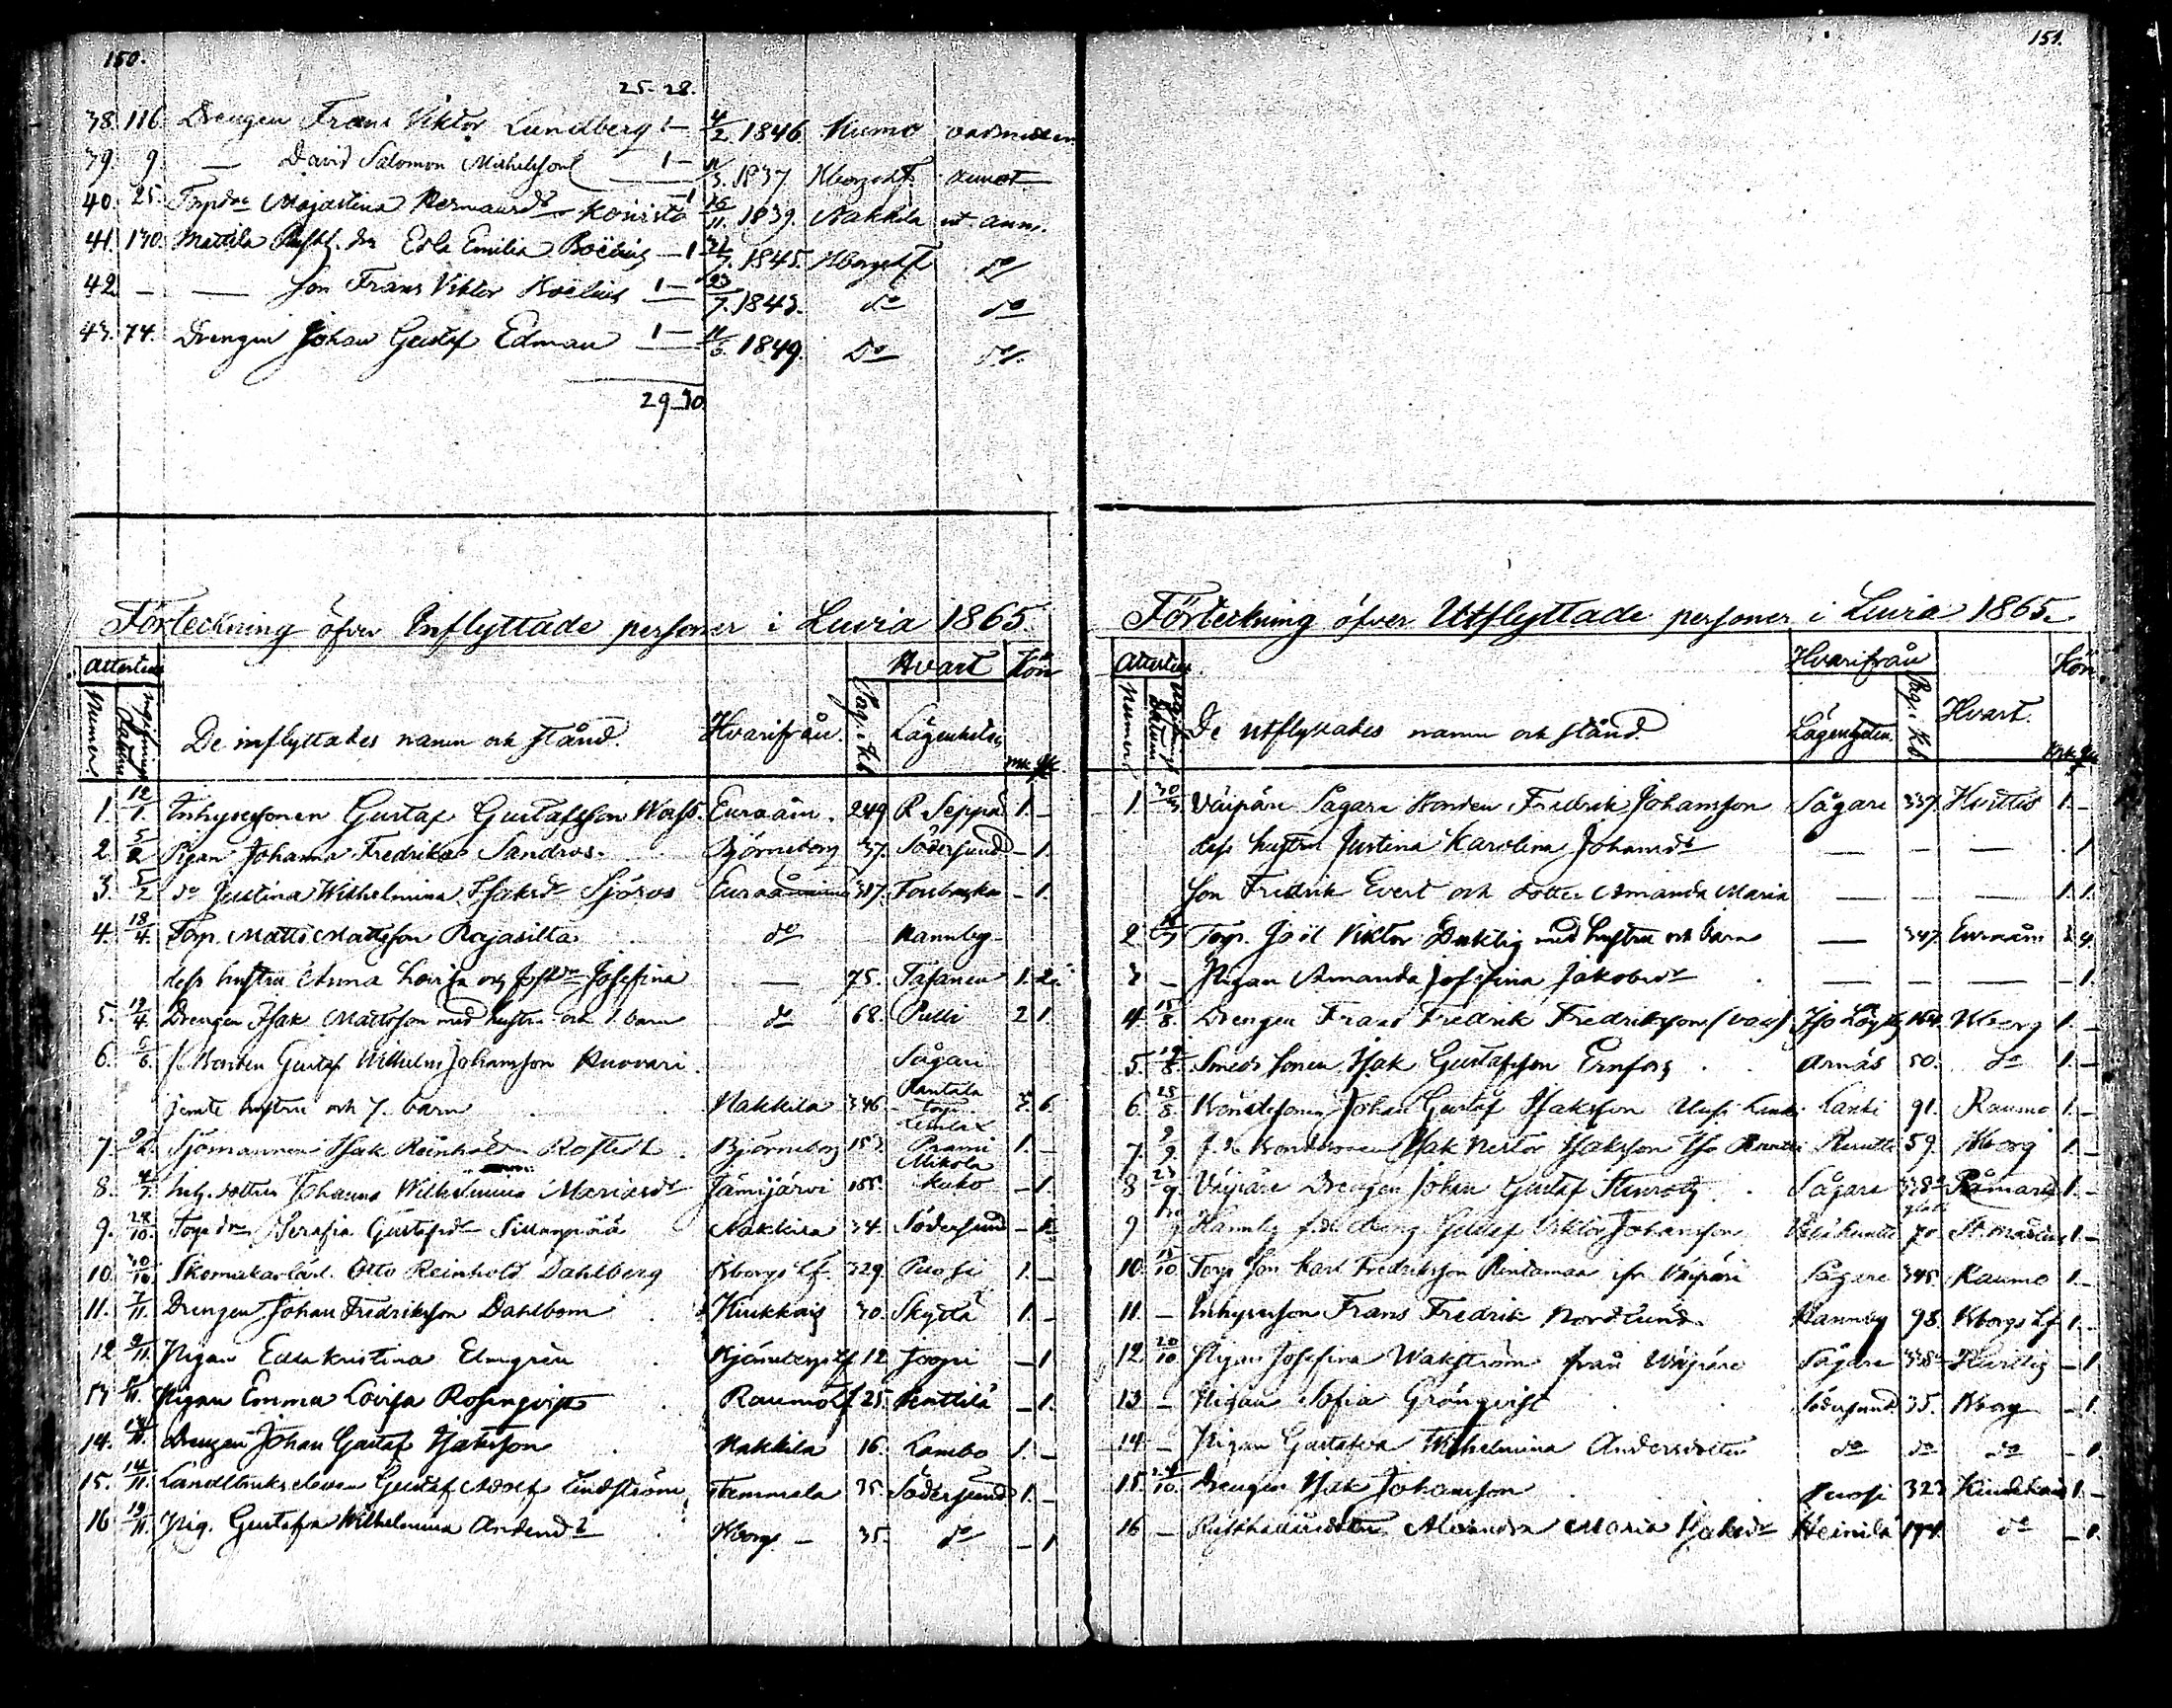 150.
25. 28.
38. 116. Drengen Frans Viktor Lundberg 1 — 4/2. 1846. Kumo
39. 9. — David Salomon Michelsson 1 — 11/3. 1837 Kborgs Lf. annot
40. 25. Torpdr Majastina Hermansdr Koivisto — 1 1839. Nakkila ut. ann.
41. 130. Mattila Rusth. dr Edla Emilia Boëlius — 1 1845. Kborgs Lf do
42. — — Son Frans Viktor Boëlius 1 — 23/7. 1843. do do
43. 74. Drengen Johan Gustaf Edman 1 — 1849. Do do.
29. 30.
Förteckning öfver Inflyttade personer i Luvia 1865.
Attestens Hvart Kön
Numer Utgifnings Datum De inflyttades namn och stånd. Hvarifrån. Pag. i Kb Lägenheten mk. qk.
1. 12/1. Inhysessonen Gustaf Gustafsson Wass. Euraåm. 249 R. Seppä 1. –
2. 5/2 Pigan Johanna Fredrika Sandros. Björneborg 37. Södersund – 1.
3. 5/2 do Justina Wilhelmina Isaksdr Sjöros Euraåminne 317. – 1.
4. 18/4. Torp. Matts Mattsson Rajasilta do Hannby
dess hustru Anna Lovisa och Josefina — 75. Tasanen 1. 2.
5. 19/4. Drengen Isak Mattsson med hustru och 1. barn do 68. Pelli 2 1.
6. 5/6. Bonden Gustaf Wilhelm Johansson Kuovari Sågari
jemte hustru och 7. barn Nakkila 346 Rantala torp 3. 6.
7. Sjömannen Isak Reinhold Rostedt Björneborg 153. Prami 1. –
8. 4/7. Inh. dottren Johanna Wilhelmina Mariasdr Jämijärvi 155. Mikola – 1.
9. 28/10. Torpdr Serafia Gustafsdr Sillanpää Nakkila 34. Södersund – 1.
10. 30/10. Skomakarlärl. Otto Reinhold Dahlberg Kborgs Lf. 329. Puosi 1. –
11. 7/11. Drengen Johan Fredriksson Dahlbom Kiukkais 30. Skyttä 1. –
12 9/11. Pigan Edla Kristina Elmgrén Björneborgs Lf 12 Jooppi – 1
13 Pigan Emma Lovisa Rosenqvist Raumo Lf 25. Kenttilä – 1.
14. Drengen Johan Gustaf Isaksson Nakkila 16. Lambo 1. –
15. 14/11. Landtbrukseleven Gustaf Adolf Lindström Tammela 35. Södersund 1. –
16 19/11. Pig. Gustafva Wilhelmina Andersdr Kborgs — 35. do – 1
151.
Förteckning öfver Utflyttade personer i Luvia 1865.
Attestens Hvarifrån Kön
Numer Utgifnings Datum De utflyttades namn och stånd. Lägenheten. Pag. i Kb Hvart. Mk. Qk
1. 30/3 Väipäre Sågare Bonden Fredrik Johansson Sågare 337. Hvittis 1. –
dess hustru Justina Karolina Johansdr — — — . 1
Son Fredrik Evert och dotter Amanda Maria — — — 1. 1.
2 Torp. Joël Viktor Duktig med hustru och barn — 347. Euraåm 4
3 – Pigan Amanda Josefina Jakobsdr — — — – 1.
4. 15/8. Drengen Frans Fredrik Fredriksson Iso Löytty 164 Kborg 1. –
5. 19/8. Smeds sonen Isak Gustafsson Ernfors Arnäs 50. do 1. –
6. 25/8. Bondesonen Johan Gustaf Isaksson Lanki 91. Raumo 1. –
7. 9/9. f. d. Bondesonen Isak Nestor Isaksson 59. Kborg 1. –
8 23/9. Väipäre Drengen Johan Gustaf Stenroth Sågare 338 Påmark 1. –
9 Hannby f.d. dreng Gustaf Viktor Johansson 70 St. Mårtens 1. –
10. 15/10. Torp. Son Karl Fredriksson Rintamaa ifr Väipäri Sågare 345. Raumo 1. –
11. – Inhysesson Frans Fredrik Nordlund. Hannby 98. Kborgs Lf 1. –
12. 20/10 Pigan Josefina Wakström från Wäipäre Sågare 338 Hvittis – 1
13. – Pigan Sofia Grönqvist Södersund. 35. Kborg – 1.
14 – Pigan Gustafva Wilhelmina Andersdotter do do do – 1
15. 24/10. Drengen Isak Johansson Puosi 323 Kiukkais 1. –
16 – Rusthållaredottren Alexandra Maria Isaksdr Heinilä 174. do – 1.